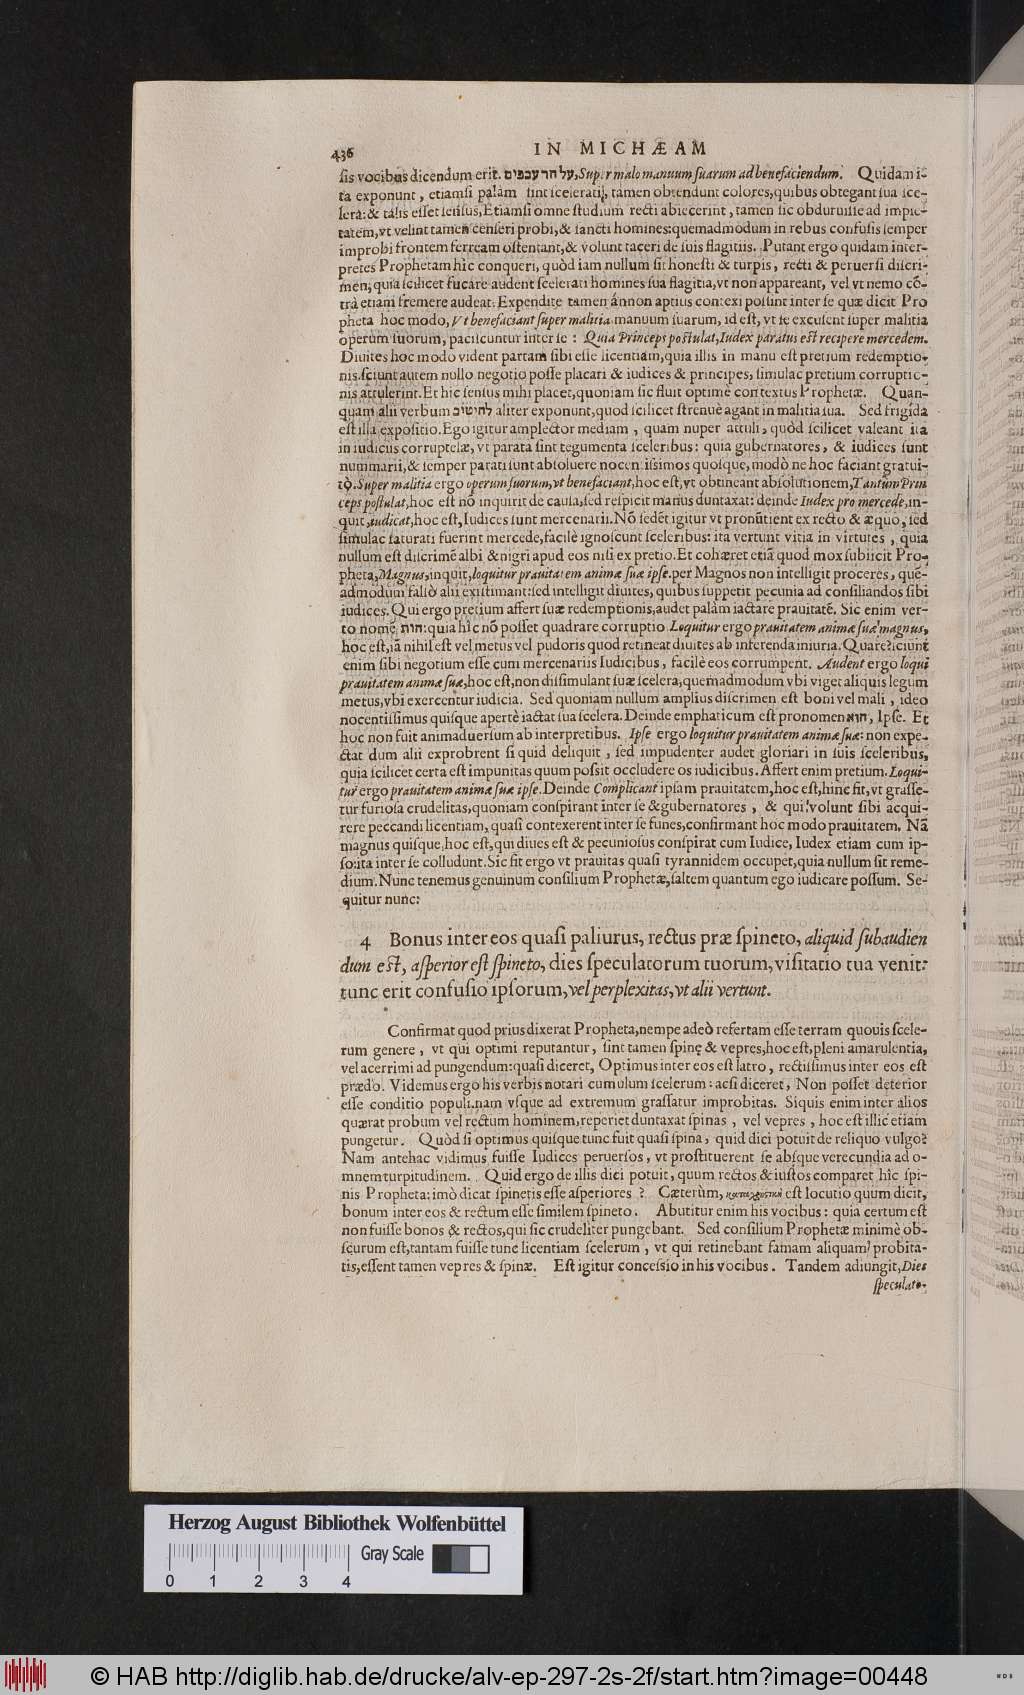 436 IN MICHÆAM
sis vocibus dicendum erit. על הרע כפים, Super malo manuum suarum ad benefaciendum. Quidam i-
ta exponunt, etiamsi palàm sint scelerati, tamen obtendunt colores, quibus obtegant sua sce-
lera: & talis esset sensus, Etiamsi omne studium recti abiecerint, tamen sic obduruisse ad impie-
tatem, vt velint tamen censeri probi, & sancti homines: quemadmodum in rebus confusis semper
improbi frontem ferream ostentant, & volunt taceri de suis flagitiis. Putant ergo quidam inter-
pretes Prophetam hîc conqueri, quòd iam nullum sit honesti & turpis, recti & peruersi discri-
men, quia scilicet fucare audent scelerati homines sua flagitia, vt non appareant, vel vt nemo cō-
trà etiam fremere audeat. Expendite tamen ánnon aptius contexi possint inter se quæ dicit Pro
pheta hoc modo, Vt benefaciant super malitia manuum suarum, id est, vt se excusent super malitia
operum suorum, paciscuntur inter se: Quia Princeps postulat, Iudex paratus est recipere mercedem.
Diuites hoc modo vident partam sibi esse licentiam, quia illis in manu est pretium redemptio-
nis. sciunt autem nullo negotio posse placari & iudices & principes, simulac pretium corruptio-
nis attulerint. Et hic sensus mihi placet, quoniam sic fluit optimè contextus Prophetæ. Quan-
quam alii verbum להיטיב aliter exponunt, quod scilicet strenuè agant in malitia sua. Sed frigida
est illa expositio. Ego igitur amplector mediam, quam nuper attuli, quòd scilicet valeant ita
in iudiciis corruptelæ, vt parata sint tegumenta sceleribus: quia gubernatores, & iudices sunt
nummarii, & semper parati sunt absoluere nocentissimos quosque, modò ne hoc faciant gratui-
tò. Super malitia ergo operum suorum, vt benefaciant, hoc est, vt obtineant absolutionem, Tantum Prin
ceps postulat, hoc est nō inquirit de causa, sed respicit manus duntaxat: deinde Iudex pro mercede, in-
quit, iudicat, hoc est, Iudices sunt mercenarii. Nō sedēt igitur vt pronūtient ex recto & æquo, sed
simulac saturati fuerint mercede, facilè ignoscunt sceleribus: ita vertunt vitia in virtutes, quia
nullum est discrimē albi & nigri apud eos nisi ex pretio. Et cohæret etiā quod mox subiicit Pro-
pheta, Magnus, inquit, loquitur prauitatem animæ suæ ipse. per Magnos non intelligit proceres, quē-
admodum falsò alii existimant: sed intelligit diuites, quibus suppetit pecunia ad consiliandos sibi
iudices. Qui ergo pretium affert suæ redemptionis, audet palàm iactare prauitatē. Sic enim ver-
to nomē הות: quia hîc nō posset quadrare corruptio. Loquitur ergo prauitatem animæ suæ magnus,
hoc est, iā nihil est vel metus vel pudoris quod retineat diuites ab inferenda iniuria. Quare? sciunt
enim sibi negotium esse cum mercenariis Iudicibus, facilè eos corrumpent. Audent ergo loqui
prauitatem animæ suæ, hoc est, non dissimulant suæ scelera, quemadmodum vbi viget aliquis legum
metus, vbi exercentur iudicia. Sed quoniam nullum amplius discrimen est boni vel mali, ideo
nocentissimus quisque apertè iactat sua scelera. Deinde emphaticum est pronomen הוא, Ipse. Et
hoc non fuit animaduersum ab interpretibus. Ipse ergo loquitur prauitatem animæ suæ: non expe-
ctat dum alii exprobrent si quid deliquit, sed impudenter audet gloriari in suis sceleribus,
quia scilicet certa est impunitas quum possit occludere os iudicibus. Affert enim pretium. Loqui-
tur ergo prauitatem animæ suæ ipse. Deinde Complicant ipsam prauitatem, hoc est, hinc fit, vt grasse-
tur furiosa crudelitas, quoniam conspirant inter se & gubernatores, & qui volunt sibi acqui-
rere peccandi licentiam, quasi contexerent inter se funes, confirmant hoc modo prauitatem. Nā
magnus quisque, hoc est, qui diues est & pecuniosus conspirat cum Iudice, Iudex etiam cum ip-
so: ita inter se colludunt. Sic fit ergo vt prauitas quasi tyrannidem occupet, quia nullum sit reme-
dium. Nunc tenemus genuinum consilium Prophetæ, saltem quantum ego iudicare possum. Se-
quitur nunc:
4 Bonus inter eos quasi paliurus, rectus præ spineto, aliquid subaudien
dum est, asperior est spineto, dies speculatorum tuorum, visitatio tua venit:
tunc erit confusio ipsorum, vel perplexitas, vt alii vertunt.
Confirmat quod prius dixerat Propheta, nempe adeò refertam esse terram quouis scele-
rum genere, vt qui optimi reputantur, sint tamen spinę & vepres, hoc est, pleni amarulentia,
vel acerrimi ad pungendum: quasi diceret, Optimus inter eos est latro, rectissimus inter eos est
prædo. Videmus ergo his verbis notari cumulum scelerum: acsi diceret, Non posset deterior
esse conditio populi. nam vsque ad extremum grassatur improbitas. Siquis enim inter alios
quærat probum vel rectum hominem, reperiet duntaxat spinas, vel vepres, hoc est illic etiam
pungetur. Quòd si optimus quisque tunc fuit quasi spina, quid dici potuit de reliquo vulgo?
Nam antehac vidimus fuisse Iudices peruersos, vt prostituerent se absque verecundia ad o-
mnem turpitudinem. Quid ergo de illis dici potuit, quum rectos & iustos comparet hîc spi-
nis Propheta: imò dicat spinetis esse asperiores? Cæterùm, καταχρηστικὴ est locutio quum dicit,
bonum inter eos & rectum esse similem spineto. Abutitur enim his vocibus: quia certum est
non fuisse bonos & rectos, qui sic crudeliter pungebant. Sed consilium Prophetæ minimè ob-
scurum est, tantam fuisse tunc licentiam scelerum, vt qui retinebant famam aliquam probita-
tis, essent tamen vepres & spinæ. Est igitur concessio in his vocibus. Tandem adiungit, Dies
speculato-
Herzog August Bibliothek Wolfenbüttel
Gray Scale
0 1 2 3 4
© HAB http://diglib.hab.de/drucke/alv-ep-297-2s-2f/start.htm?image=00448